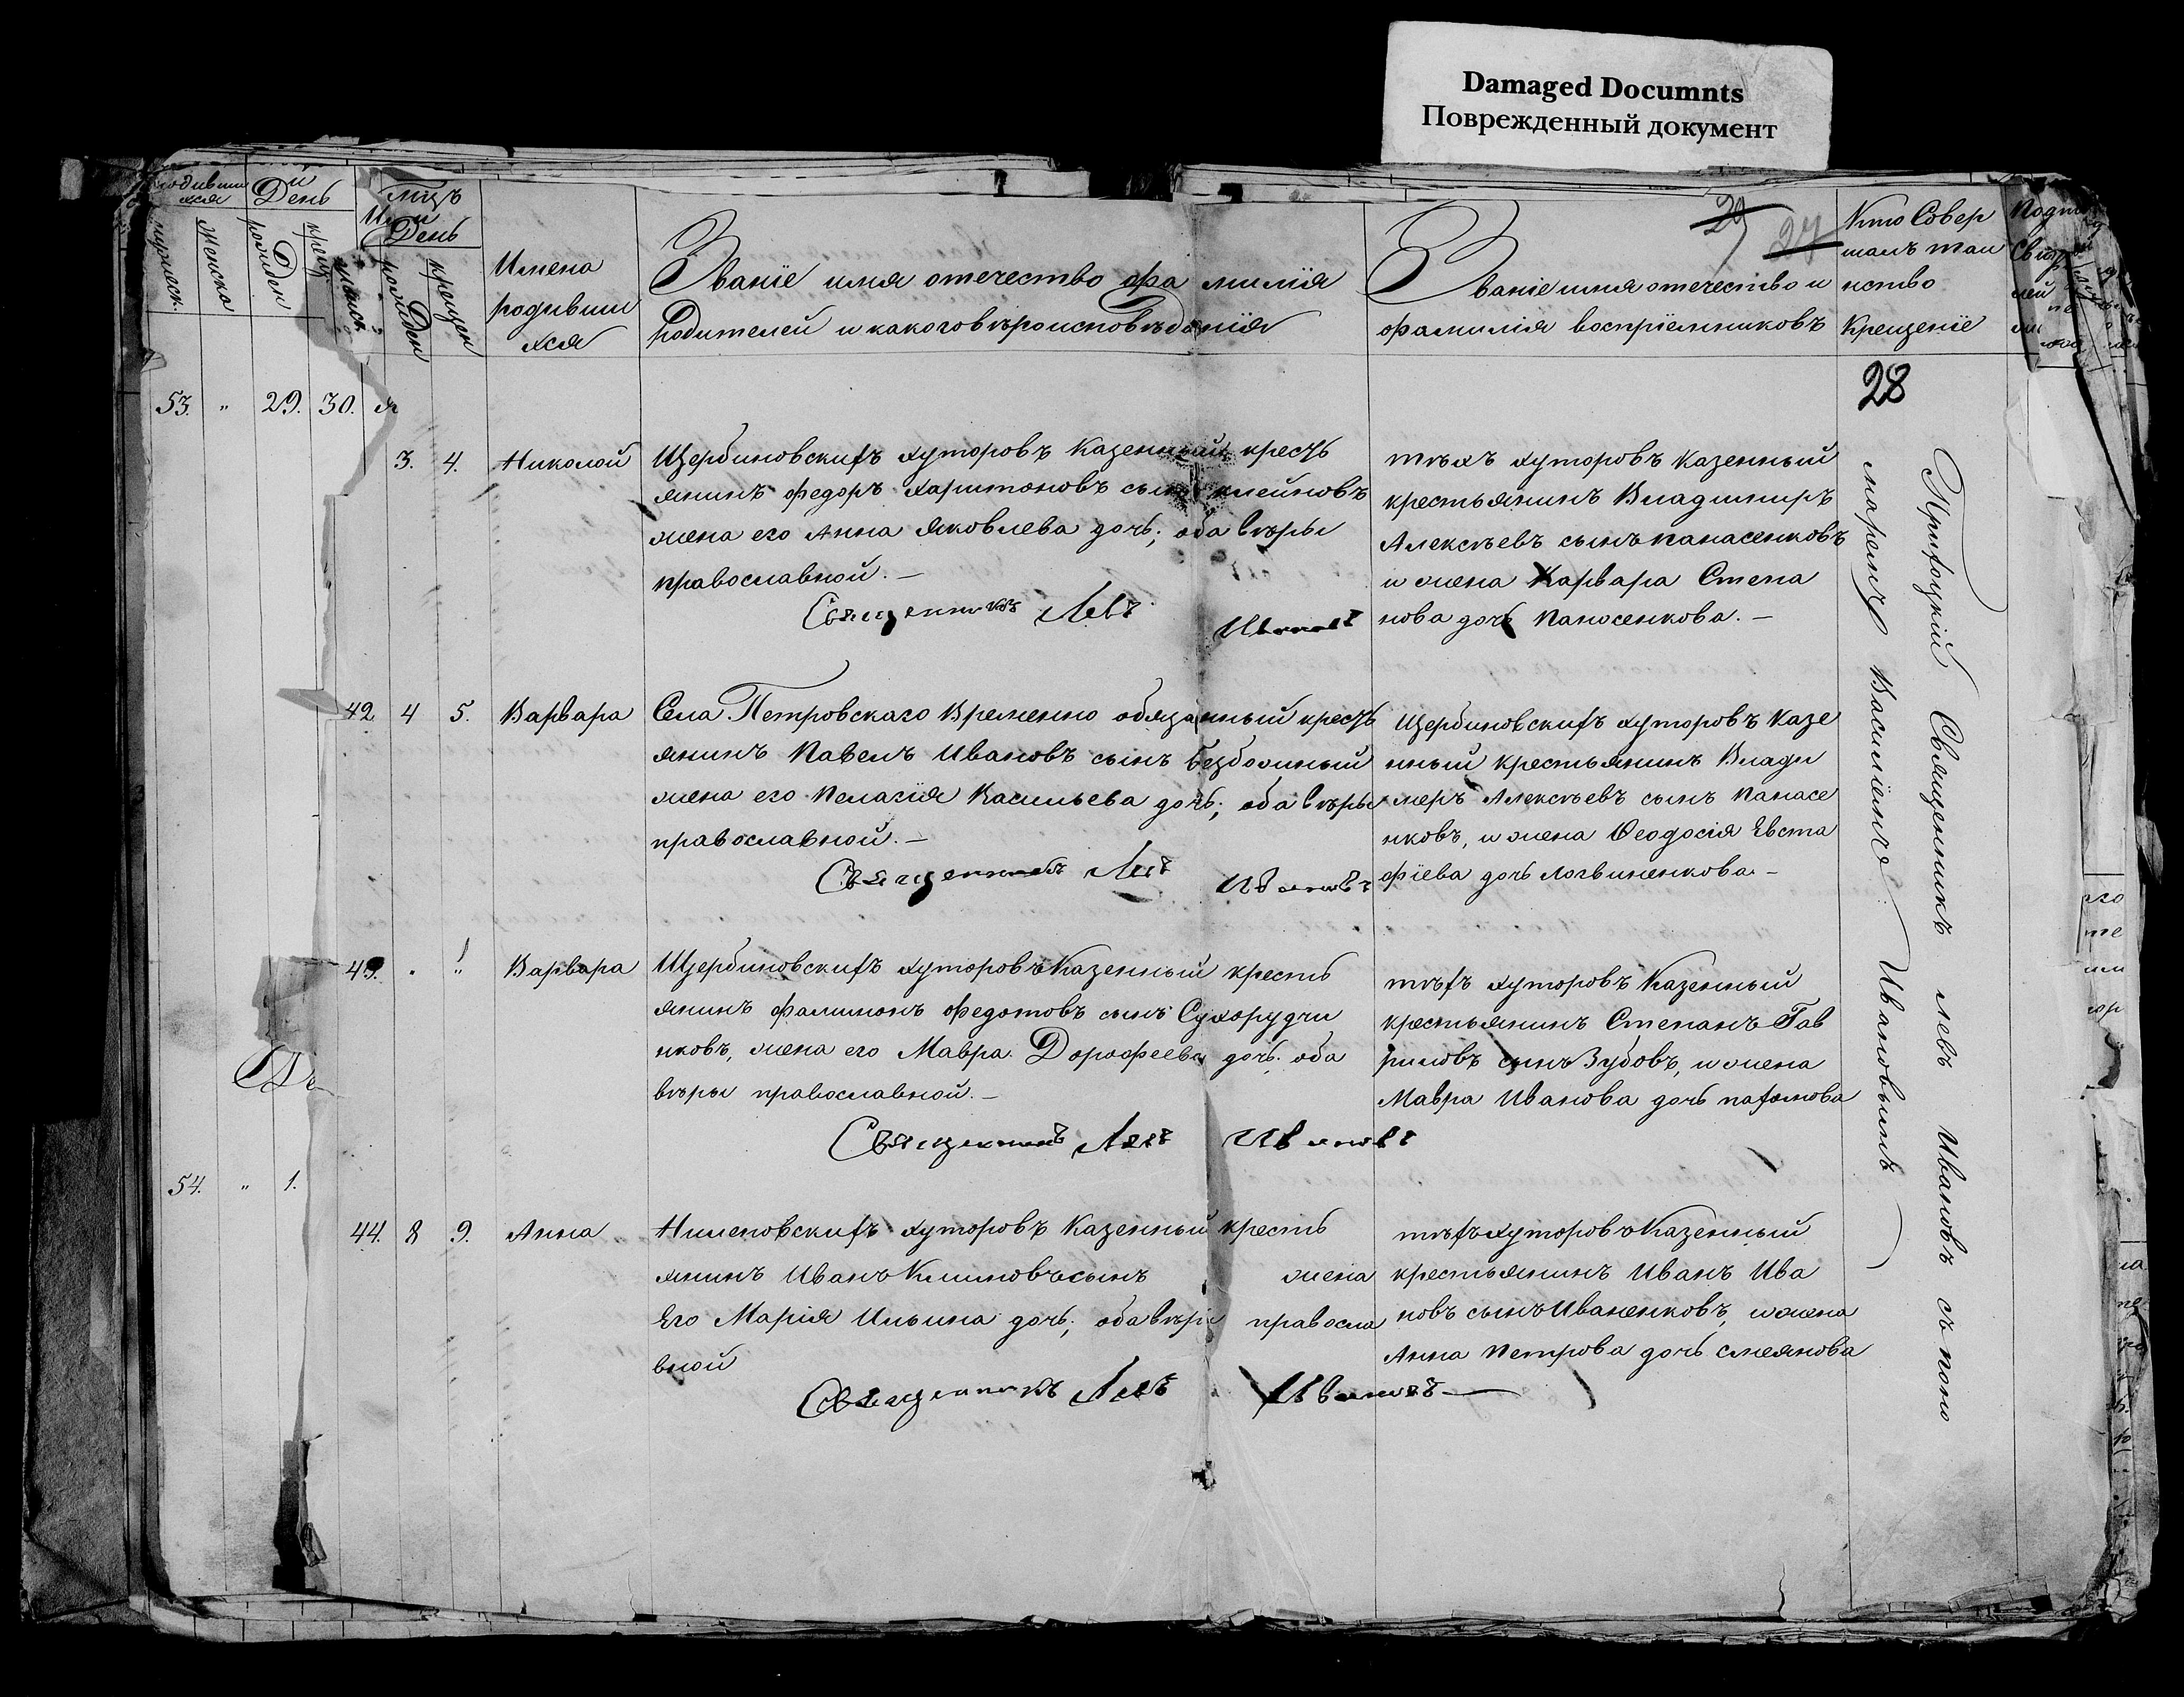 Damaged Documnts
Поврежденный документ
29
27
28
и
День
День
мужеск.
женска
рожден
рожден
крещен
Имена
родивши
хся
Званіе имя отечество фа милія
родителей и какого вѣроисповѣданія
Званіе имя отечество и
фамилія воспріемниковъ
Кто Совер
шалъ таи
нство
Крещеніе
53. " 29. 30.
3. 4. Николай
Щербиновскихъ хуторовъ Казенный кресть
янинъ Федоръ Харитоновъ сынъ Клейновъ
жена его Анна Яковлева дочь; оба вѣры
православной.—
Священникъ Левъ Ивановъ
тѣхъ хуторовъ казенный
крестьянинъ Владимиръ
Алексѣевъ сынъ Панасенковъ
и жена Варвара Степа
нова дочь Панасенкова.—
42. 4 5. Варвара
Села Петровскаго Временно обязанный кресть
янинъ Павелъ Ивановъ сынъ Безбожный
жена его Пелагія Васильева дочь; оба вѣры
православной.—
Священникъ Левъ Ивановъ
Щербиновскихъ хуторовъ Казе
нный крестьянинъ Влади
меръ Алексѣевъ сынъ Панасе
нковъ, и жена Ѳеодосія Евста
фіева дочь Логвиненкова—
43. " " Варвара
Щербиновскихъ хуторовъ Казенный кресть
янинъ Филимонъ Федотовъ сынъ Сухоручи
нковъ, жена его Мавра Дорофеева дочь; оба
вѣры православной.—
Священникъ Левъ Ивановъ
тѣхъ хуторовъ Казенный
крестьянинъ Степанъ Гав
риловъ сынъ Зубовъ, и жена
Мавра Иванова дочь Пахомова
54. " 1.
44. 8 9. Анна
хуторовъ Казенный кресть
янинъ Иванъ Климовъ сынъ жена
Его Марія Ильина дочь; оба вѣры правосла
вной
Священникъ Левъ Ивановъ—
тѣхъ хуторовъ Казенный
крестьянинъ Иванъ Ива
новъ сынъ Иваненковъ, и жена
Анна Петрова дочь Смеянова
Приходскій Священникъ Левъ Ивановъ съ поно
маремъ Василіемъ Ивановымъ